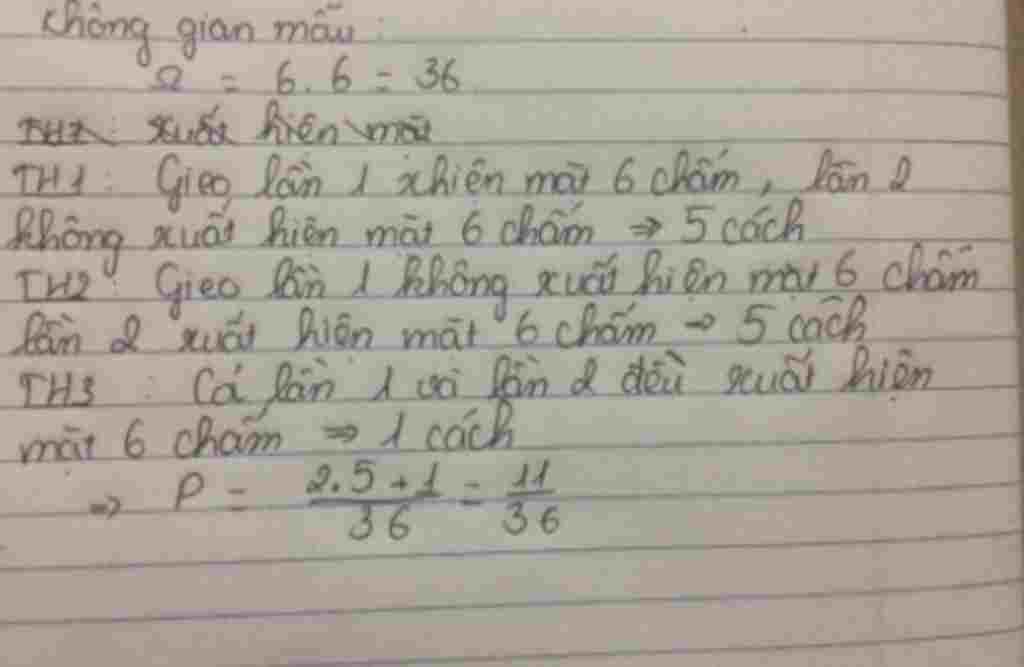 Không gian mẫu:
Ω = 6.6 = 36
TH1: xuất hiện mặt
TH1: Gieo lần 1 xhiện mặt 6 chấm, lần 2
không xuất hiện mặt 6 chấm => 5 cách
TH2: Gieo lần 1 không xuất hiện mặt 6 chấm
lần 2 xuất hiện mặt 6 chấm => 5 cách
TH3: Cả lần 1 và lần 2 đều xuất hiện
mặt 6 chấm => 1 cách
=> P = (2.5+1)/36 = 11/36